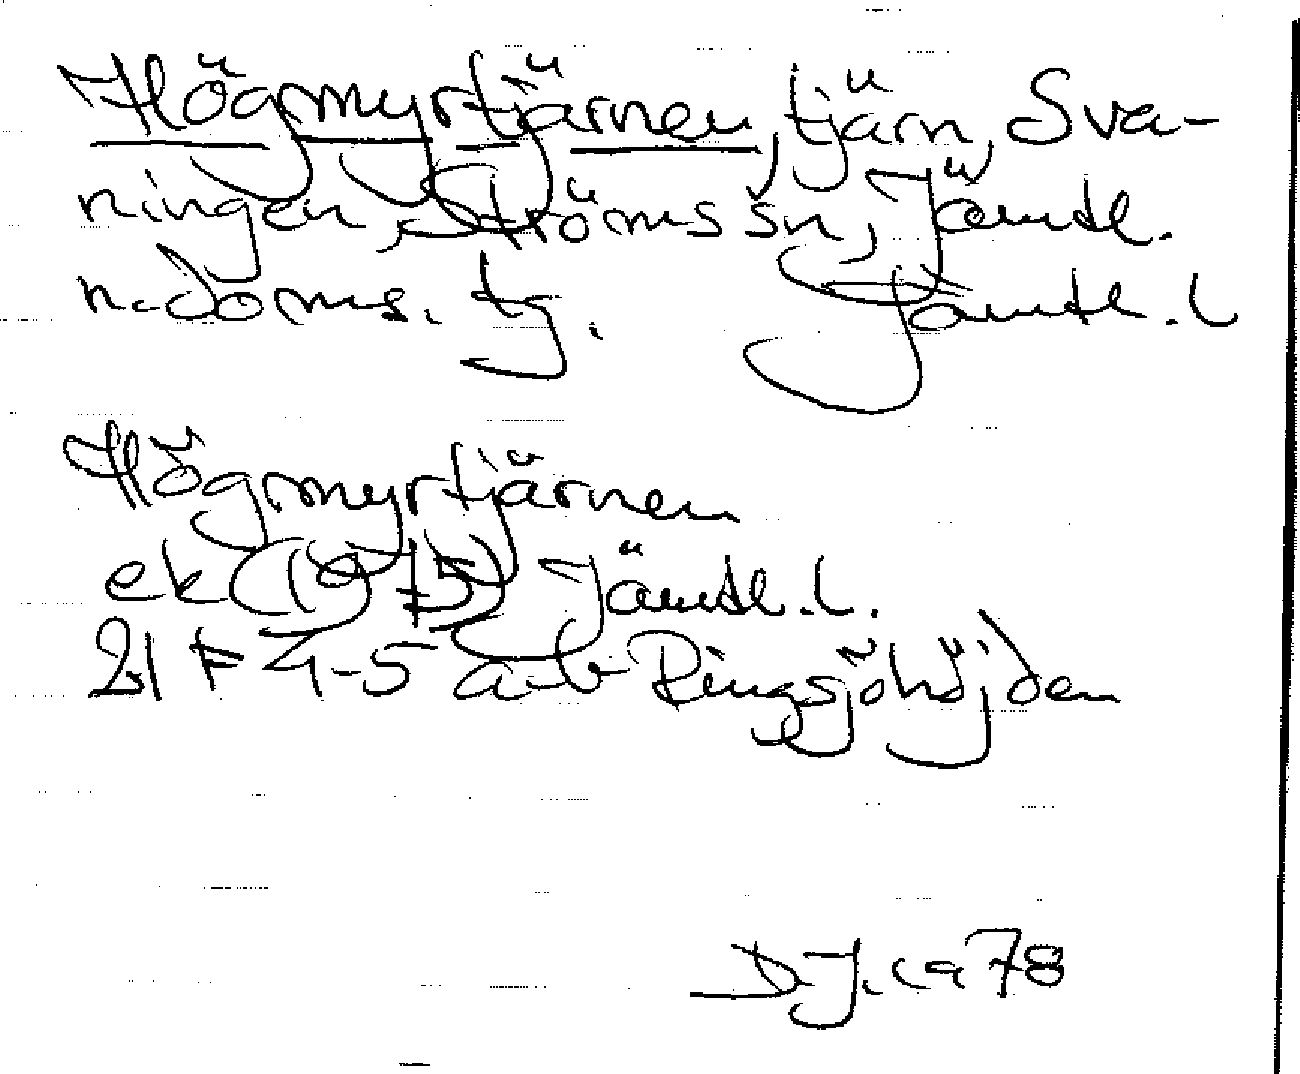 Högmyrtjärnen, tjärn, Sva-
ningen, Ströms sn, Jämtl.
n. doms. tj. Jämtl. l
Högmyrtjärnen
ek (1975) Jämtl. l.
21 F 4-5 a-b Ringsjöhöjden
D.J. ca 78